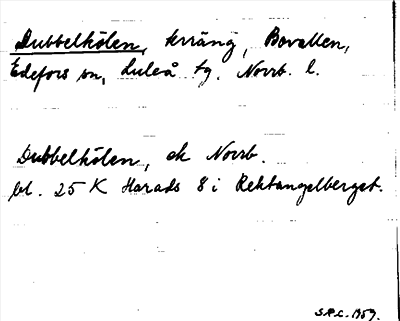 Dubbelkölen, terräng, Bovallen,
Edefors sn, Luleå tg. Norrb. l.
Dubbelkölen, ek Norrb.
bl. 25 K Harads 8 i Rektangelberget.
1959.